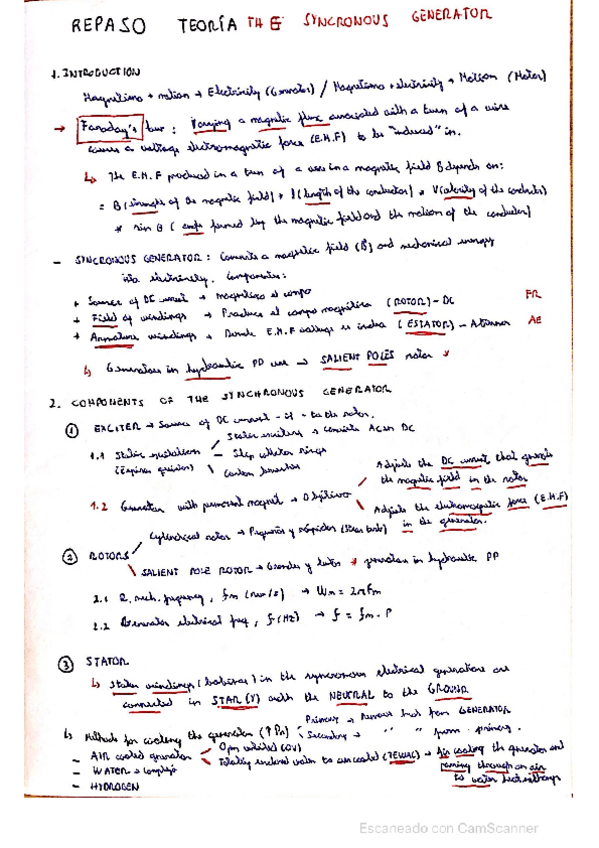 REPASO TEORÍA THE SYNCRONOUS GENERATOR
1. INTRODUCTION
Magnetismo + motion → Electricity (Generator) / Magnetismo + electricity → Motion (Motor)
→ Faraday's law: Varying a magnetic flux associated with a turn of a wire
causes a voltage electromagnetic force (E.M.F) to be "induced" in.
↳ The E.M.F produced in a turn of a wire in a magnetic field B depends on:
= B (strength of the magnetic field) * l (length of the conductor) * V (velocity of the conductor)
* sin θ ( formed by the magnetic field and the motion of the conductor)
- SYNCRONOUS GENERATOR: Converts a magnetic field (B) and mechanical energy
into electricity. Components:
+ Source of DC current → magnetiza el campo
+ Field of windings → Produces el campo magnético (ROTOR) - DC FR
+ Armature windings → Donde E.M.F voltage is (ESTATOR) - AE
↳ Generators in hydraulic PP use → SALIENT POLES rotor *
2. COMPONENTS OF THE SYNCHRONOUS GENERATOR
① EXCITER → Source of DC current - if - to the rotor.
Static exciters → AC en DC
1.1 Static - rings
Carbon brushes
1.2 Generator with permanent magnet → Objetivos
Adjusts the DC current that
the magnetic field in the rotor
Adjusts the electromagnetic force (E.M.F)
in the generator.
Cylindrical rotor → Pequeños y rápidos
② ROTORS
SALIENT POLE ROTOR → Grandes y lentos * generators in hydraulic PP
2.1 R. mech. frequency, fm (rev/s) → Wm = 2πfm
2.2 Generator electrical freq, f (Hz) → f = fm · P
③ STATOR
↳ Stator windings (bobinas) in the syncronous electrical generators are
connected in STAR (Y) with the NEUTRAL to the GROUND
Primary → Remove heat from GENERATOR
↳ Methods for cooling the generator (↑Pn) Secondary → " " from primary.
- AIR cooled generator Open ventilated (OV)
Totally enclosed water to air cooled (TEWAC) → Air cooling the generator and
- WATER → through an air
- HYDROGEN to water
Escaneado con CamScanner